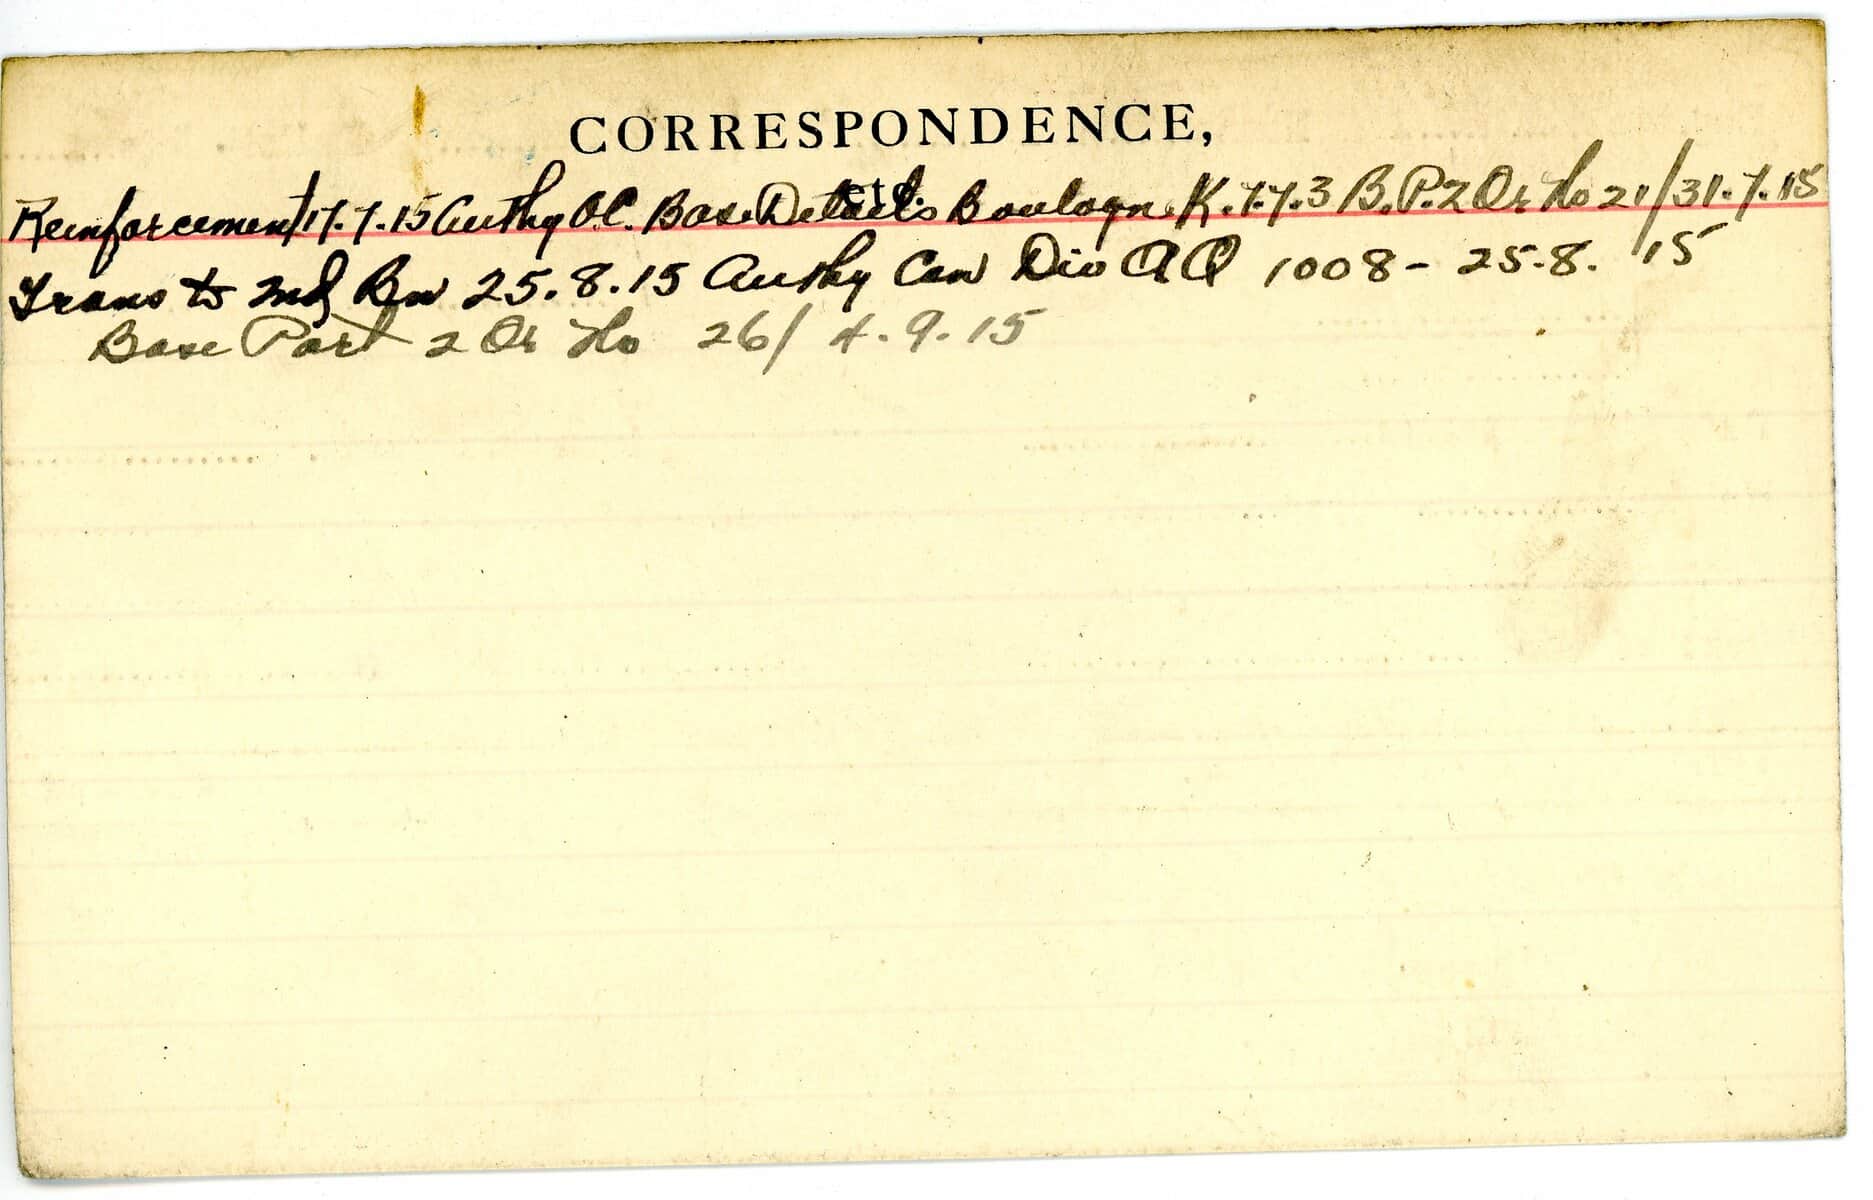 CORRESPONDENCE,
etc.
Reinforcement 17.7.15 Authy O.C. Base Details Boulogne K.7.7.3 B.P.2 Or No 21/31.7.15
Trans to 2nd Bn 25.8.15 Authy Can Div AQ 1008 - 25.8.15
Base Part 2 Or No 26/ 4.9.15